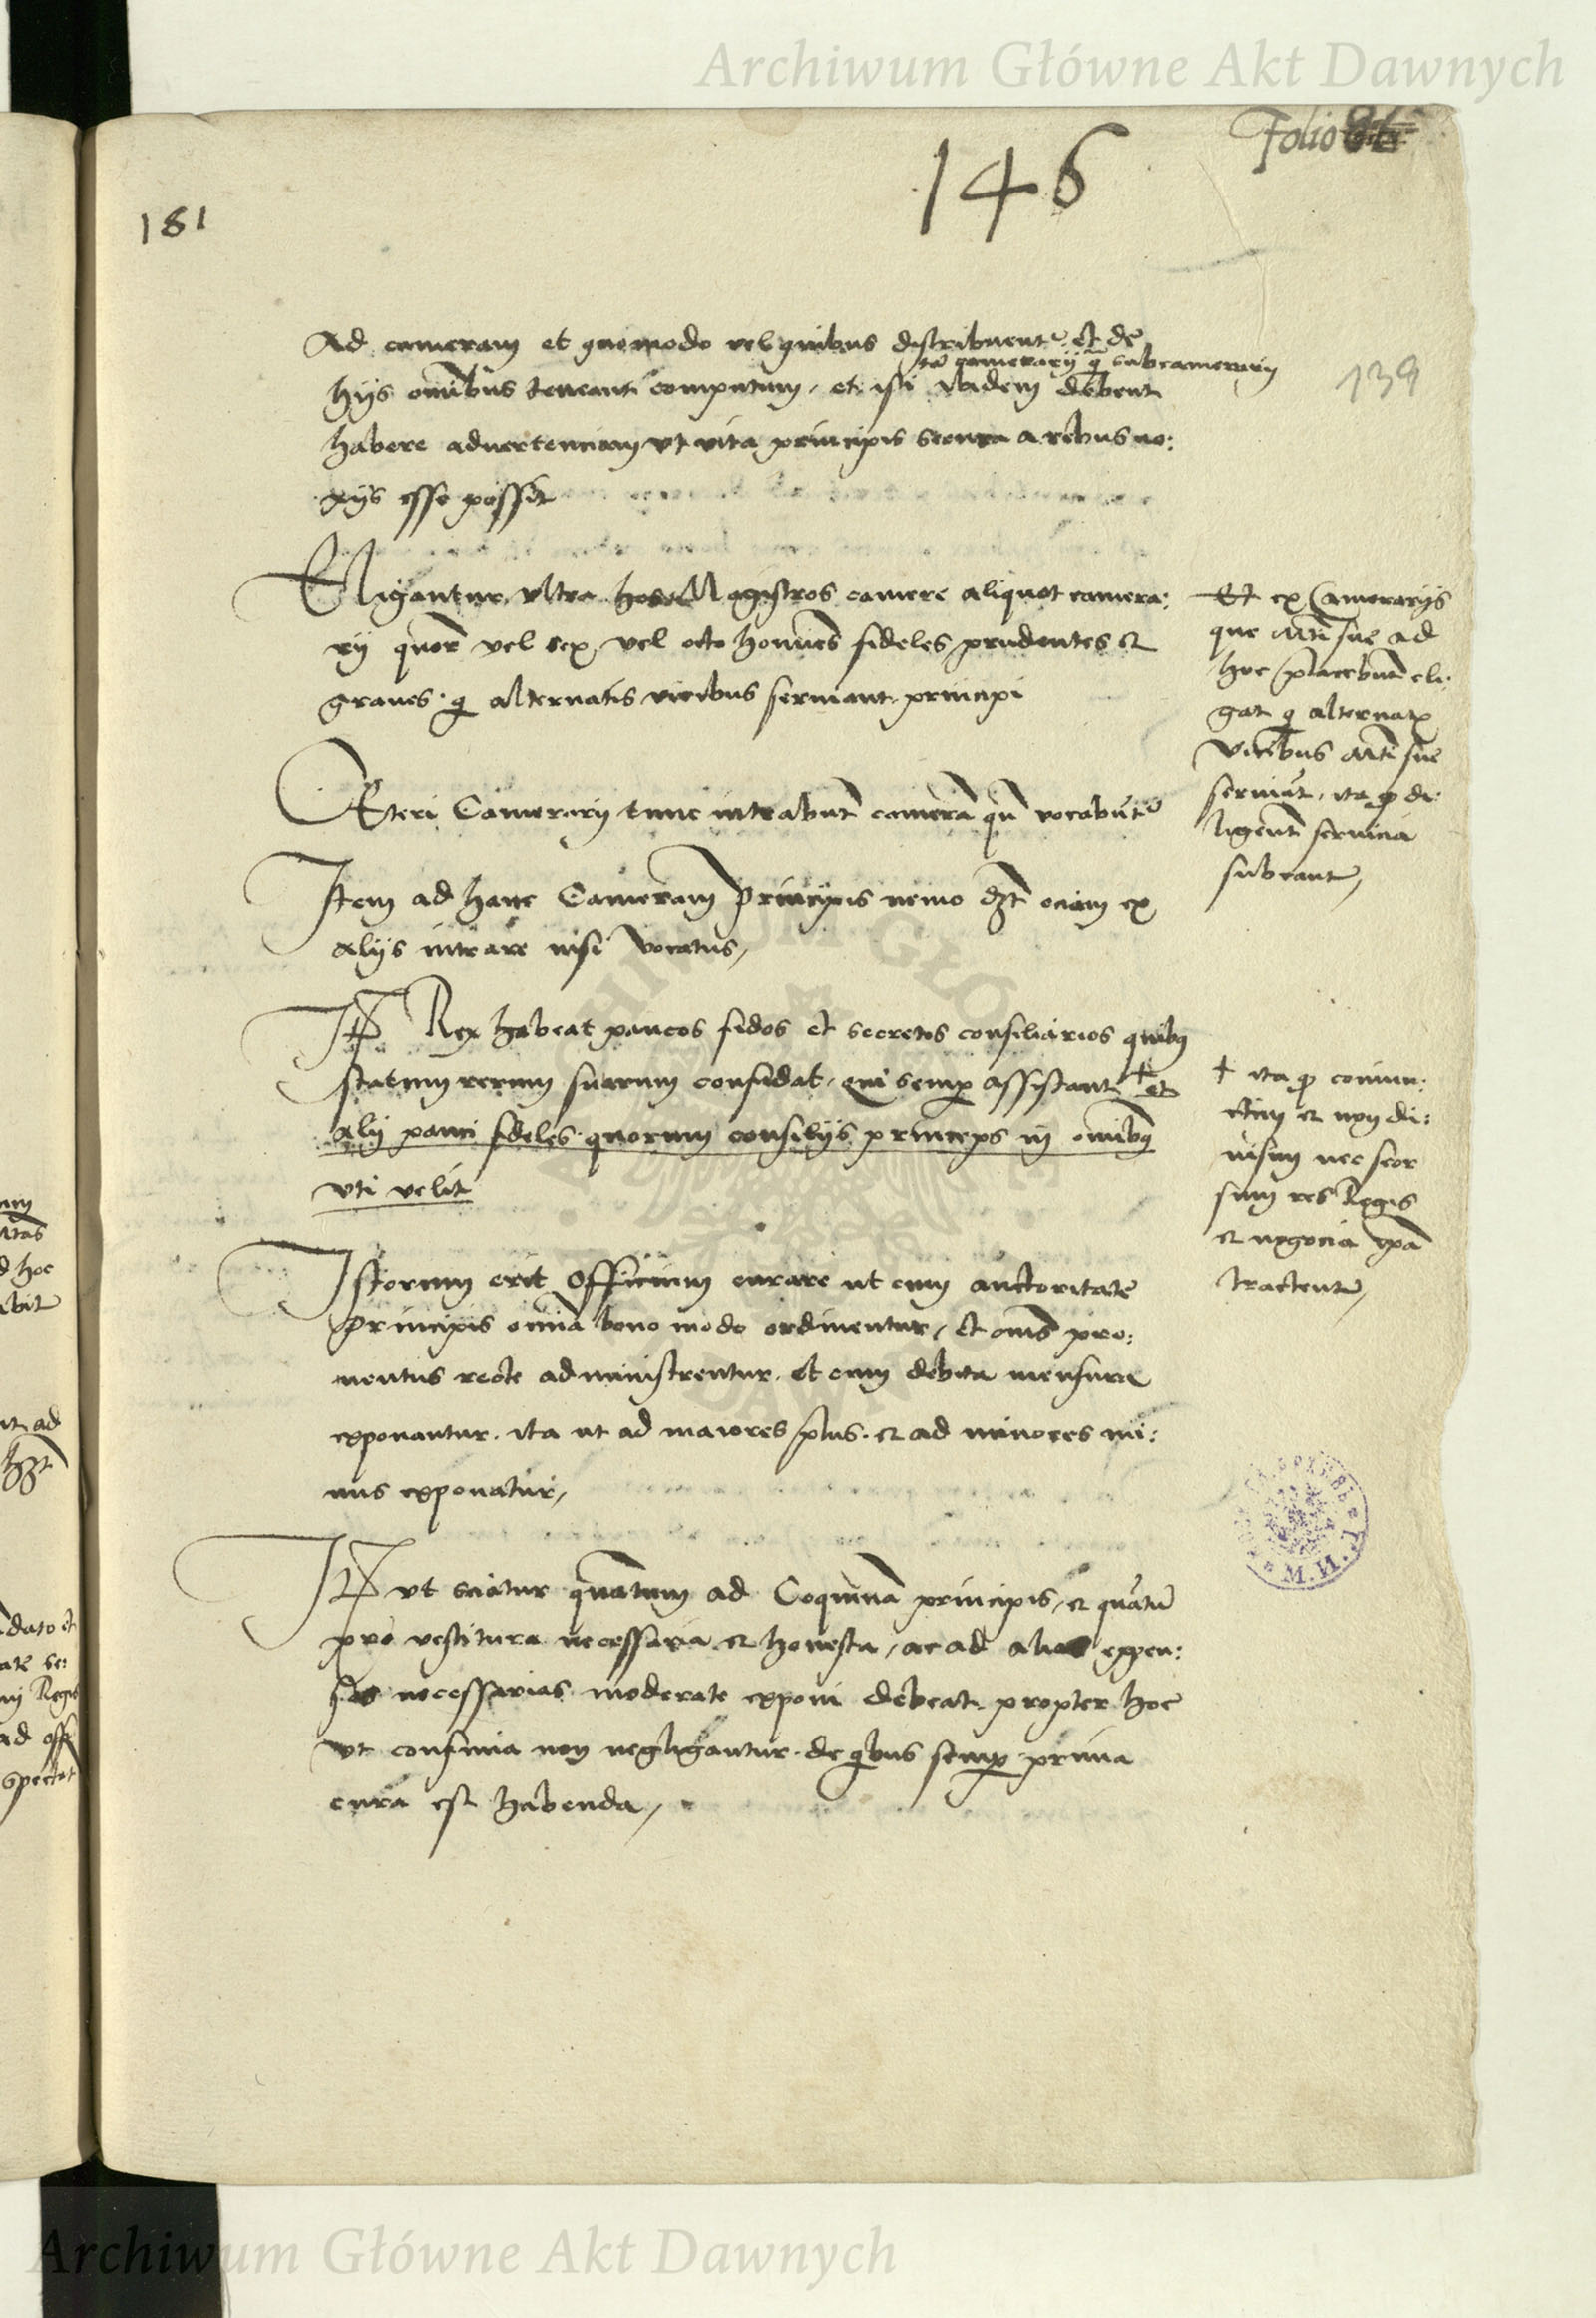 Archiwum Główne Akt Dawnych
Folio
146
181
139
Ad cameram et quomodo vel quibus distribuentr et de
tā camerarij q̄ subcamerarij
hijs omibus teneant computum, et isti ibidem debent
habere aduertenciam vt vita principis secura a rebus no:
xijs esse possit
Eligantur vltra hos Magistros camere aliquot camera:
rij quor vel sex, vel octo homines fideles prudentes et
graues. q alternatis vicibus seruiant principi
Et ex Camerarijs
que Mti sue ad
hoc placebunt eli:
gat q alternatis
vicibus Mti sue
seruiāt, ita q di:
ligent seruicia
subeant,
Ceteri Camerarij tunc intrabunt camerā qn vocabūtr
Item ad hanc Cameram Principis nemo dzt eciam ex
alijs intrare nisi vocatus,
It Rex habeat paucos fidos et secretos consiliarios quibus
statum rerum suarum confidat, qui semp assistant + et
alij pauci fideles quorum consilijs princeps in omibus
vti velit
+ ita q coniun:
ctim et non di:
uisim nec seor
sum res Regis
et negocia ipa
tractentr,
Istorum erit officium curare ut cum auctoritate
Principis omnia bono modo ordinentur, et oms pro:
uentus recte administrentur et cum debita mensura
exponantur. ita ut ad maiores plus. et ad minores mi:
nus exponatur,
It vt sciatur quantum ad Coquinā principis, et quātū
pro vestitura necessaria et honesta, ac ad alias expen:
sas necessarias moderate exponi debeat. propter hoc
vt confinia non negligantur. de qibus semp prima
cura est habenda,
Archiwum Główne Akt Dawnych